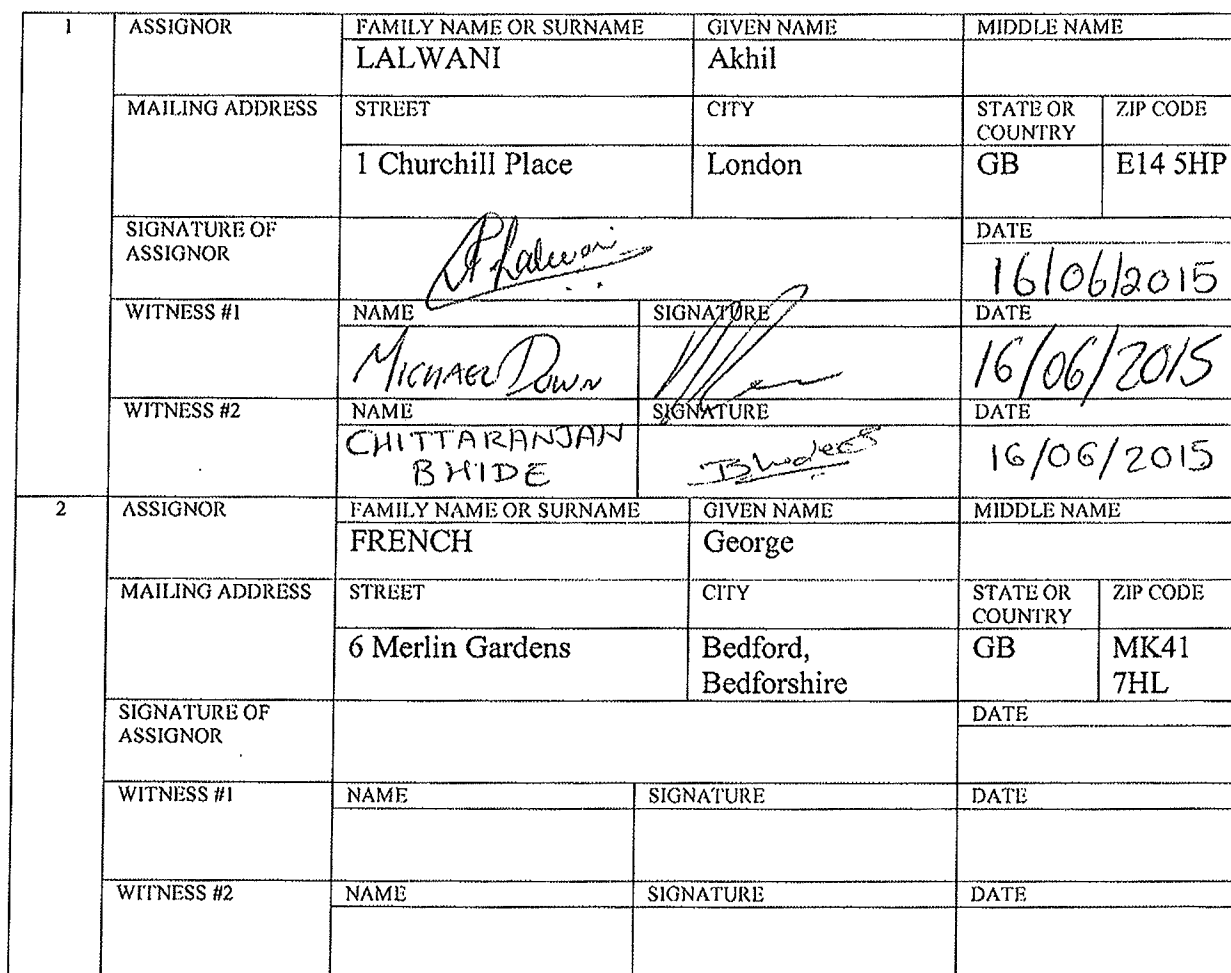 1 ASSIGNOR FAMILY NAME OR SURNAME GIVEN NAME MIDDLE NAME
LALWANI Akhil
MAILING ADDRESS STREET CITY STATE OR COUNTRY ZIP CODE
1 Churchill Place London GB E14 5HP
SIGNATURE OF ASSIGNOR DATE
Lalwani 16/06/2015
WITNESS #1 NAME SIGNATURE DATE
MICHAEL DOWN 16/06/2015
WITNESS #2 NAME SIGNATURE DATE
CHITTARANJAN
BHIDE 16/06/2015
2 ASSIGNOR FAMILY NAME OR SURNAME GIVEN NAME MIDDLE NAME
FRENCH George
MAILING ADDRESS STREET CITY STATE OR COUNTRY ZIP CODE
6 Merlin Gardens Bedford, GB MK41
Bedforshire 7HL
SIGNATURE OF ASSIGNOR DATE
WITNESS #1 NAME SIGNATURE DATE
WITNESS #2 NAME SIGNATURE DATE